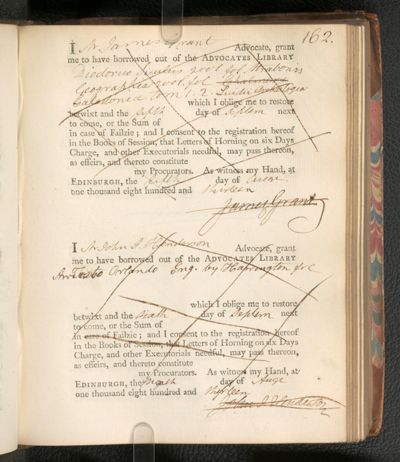 162.
I Mr James Grant Advocate, grant
me to have borrowed out of the ADVOCATES LIBRARY
Diodorus Siculus 2 vol fol Strabonis
Geographia 2 vol fol
Caledonea vol 1. 2.
which I oblige me to restore
betwixt and the day of Septem next
to come, or the Sum of
in case of Failzie; and I consent to the registration hereof
in the Books of Session, that Letters of Horning on six Days
Charge, and other Executorials needful, may pass thereon,
as effeirs, and thereto constitute
my Procurators. As witness my Hand, at
EDINBURGH, the day of
one thousand eight hundred and thirteen
James Grant
I Mr John J. Henderson Advocate, grant
me to have borrowed out of the ADVOCATES LIBRARY
Ariosto Orlando Eng. by Harrington fol
which I oblige me to restore
betwixt and the day of Septem next
to come, or the Sum of
in case of Failzie; and I consent to the registration hereof
in the Books of Session, that Letters of Horning on six Days
Charge, and other Executorials needful, may pass thereon,
as effeirs, and thereto constitute
my Procurators. As witness my Hand, at
EDINBURGH, the day of Augt
one thousand eight hundred and thirteen
John J. Henderson